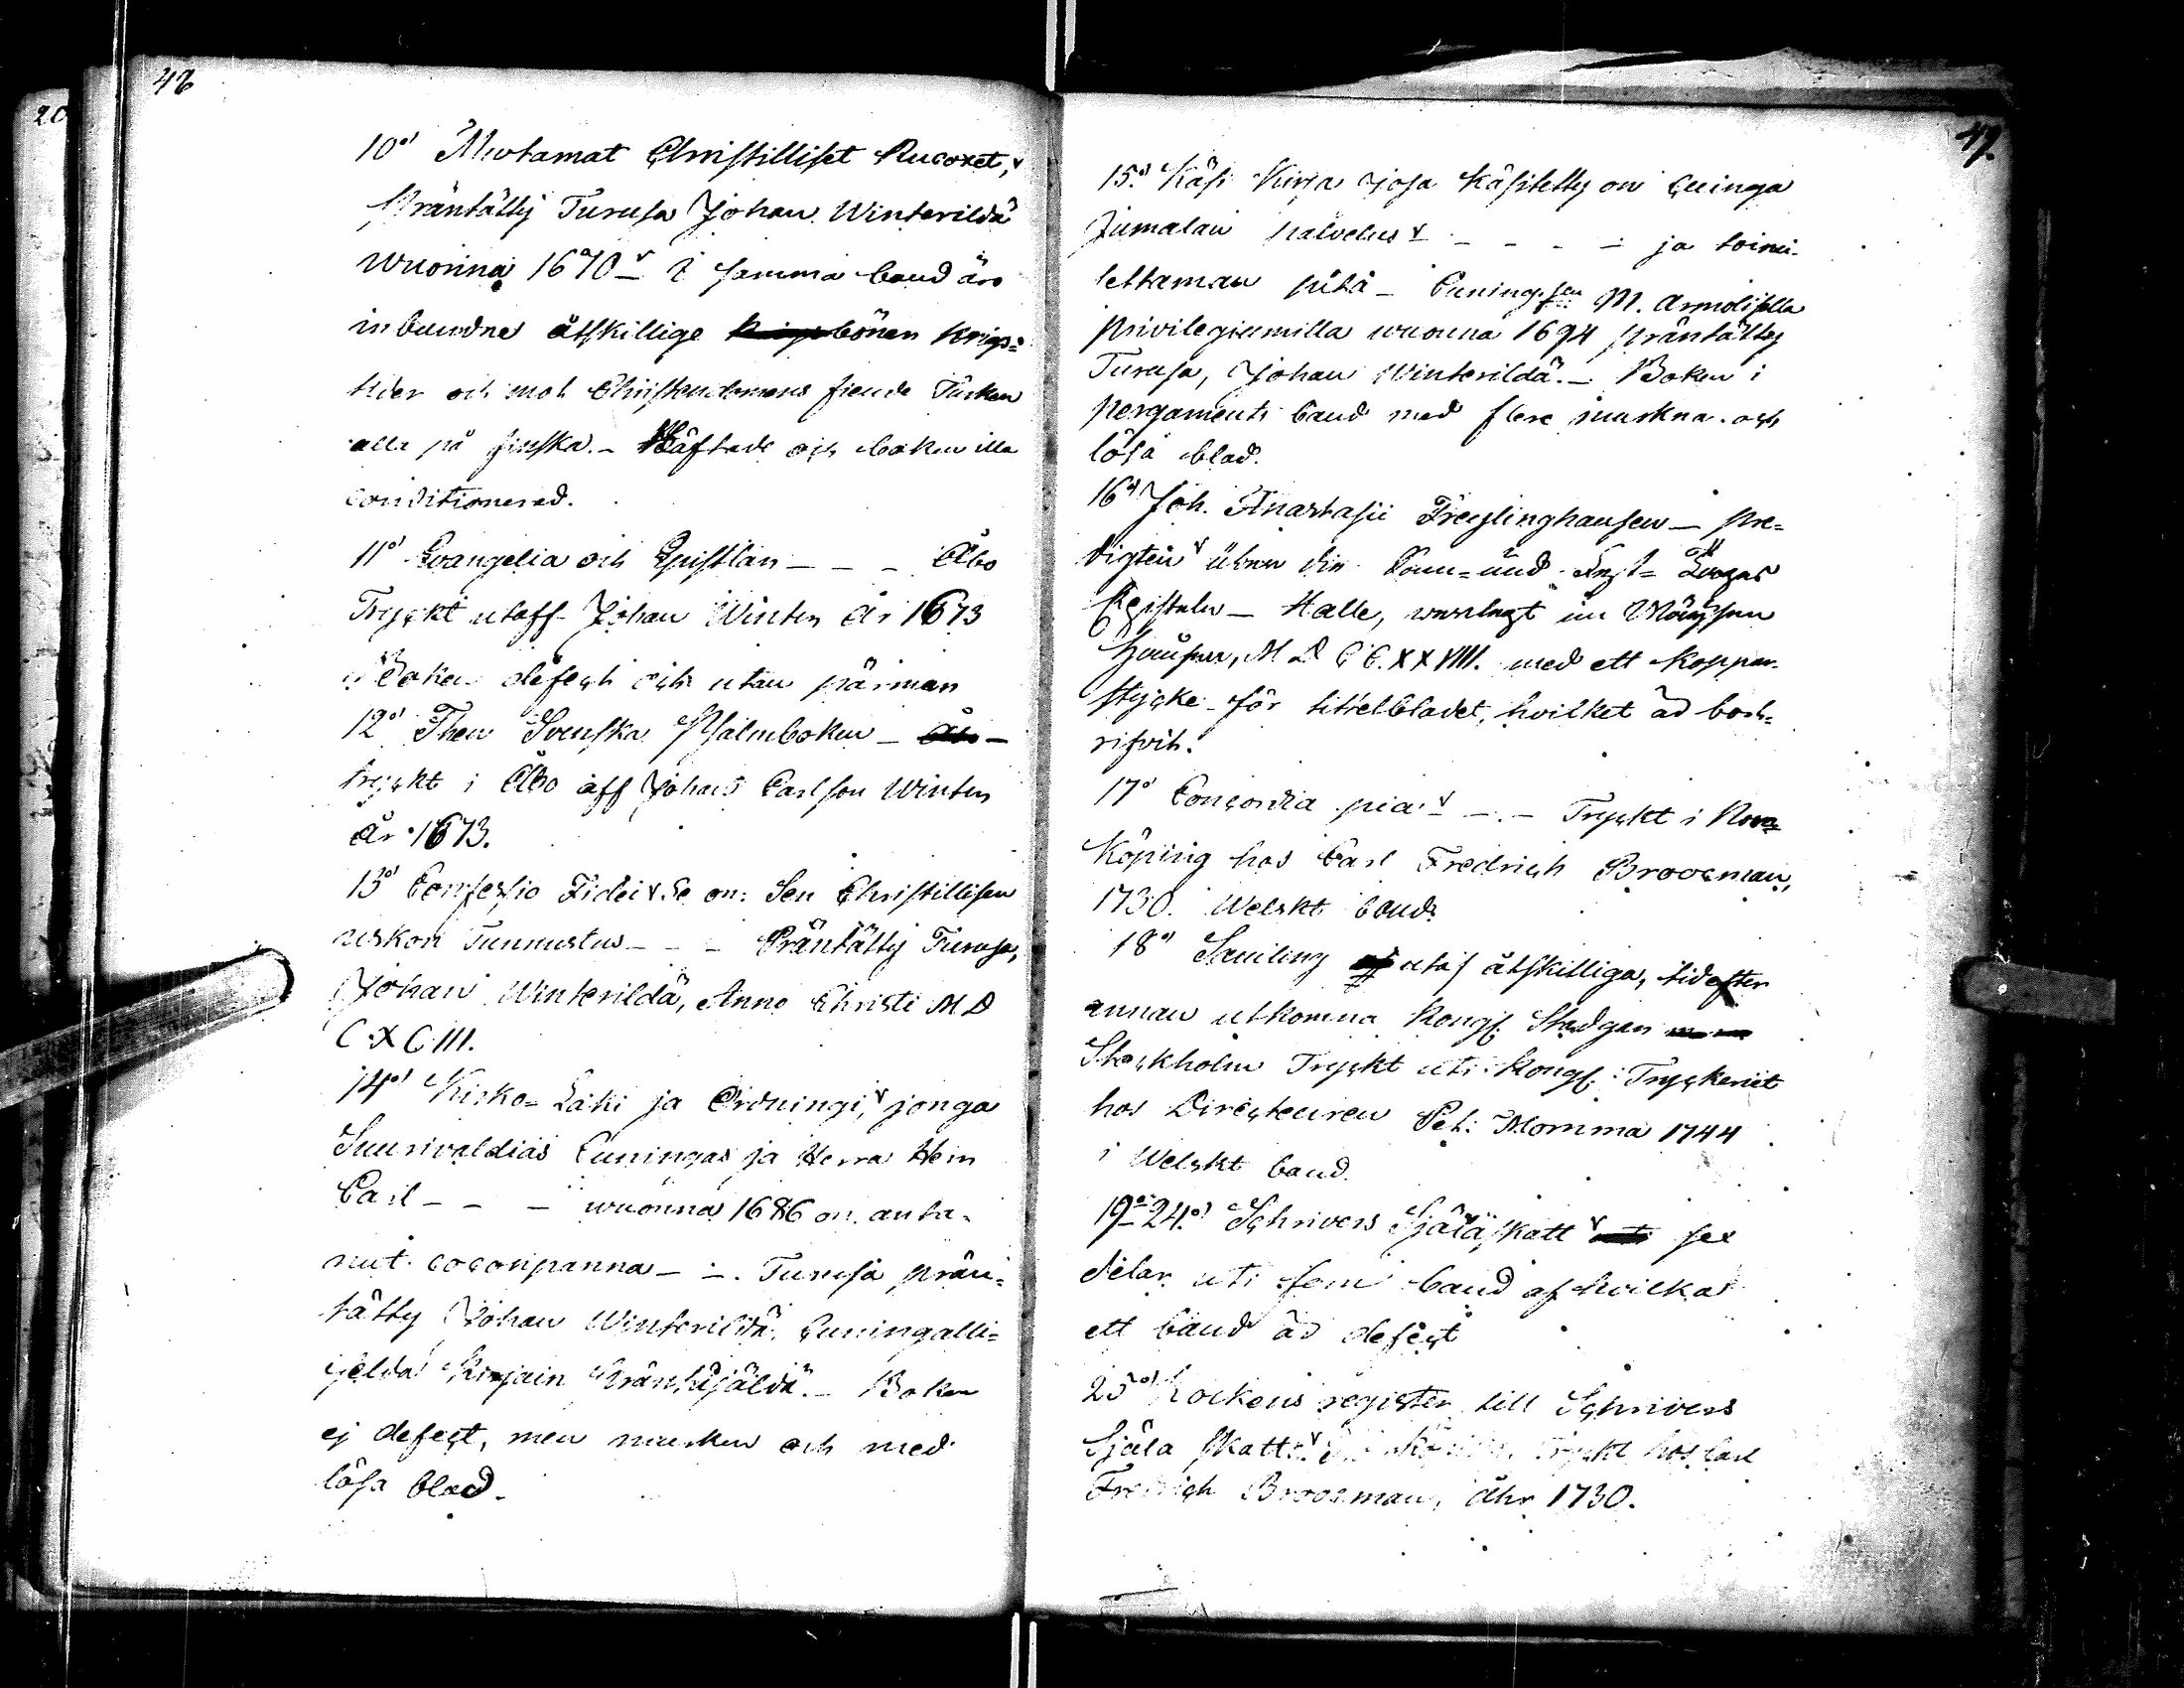 46
20
10:o Muutamat Christilliset Rucoxet,
präntätty Turusa Johan Winterildä
wuonna 1670 I samma band äro
inbundne åtskillige böner krigs=
tider och mot Christendomens fiende Turken
alla på finska. – Häftade och boken illa
conditionerad.
11:o Evangelia och Epistlar – – – Åbo
Tryckt utaff Johan Winter År 1673
Boken defect och utan pärmar
12:o Then Svenska Psalmboken –
tryckt i Åbo aff Johan Carlson Winter
År 1673.
13:o Confessio Fidei Se on: Sen Christillisen
uskon Tunnustus – – – Präntätty Turusa,
Johan Winterildä, Anno Christi M D
C X C III.
14:o Kirko=Laki ja Ordningi, jonga
Suurivaldias Cuningas ja Herra Herr
Carl – – – wuonna 1686 on anta=
nut cocoonpanna – – Turusa, prän=
tätty Johan Winterildä, Cuningalli=
selda Kirjain Präntäjäldä. – Boken
ej defect, men murken och med
lösa blad.
47.
15:o Käsi Kirja Josa käsitetty on cuinga
Jumalan palvelus – – – – ja toimi=
tettaman pitä – Cuning:sen M. Armolisella
privilegiumilla wuonna 1694 präntätty
Turusa, Johan Winterildä. – Boken i
pergaments band med flere murkna och
lösa blad.
16:o Joh. Anastasii Freylinghausen – Pre=
digten über die Sonn= und Fest=
Episteln – Halle, verlegt im Wäysen
Hause, M D C C. X X VIII. med ett koppar
stycke för titelbladet, hvilket är bort=
rifvit.
17:o Concordia pia – – – Tryckt i Norr=
Köping hos Carl Fredrich Broocman,
1730. Welskt band.
18:o Samling utaf åtskilliga, tid efter
annan utkomna Kongl. Stadgar
Stockholm Tryckt uti Kongl: Tryckeriet
hos Directeuren Pet: Momma 1744
i Welskt band.
19:o–24:o Schrivers Själaskatt sex
delar uti fem band af hvilka
ett band är defect
25:o Lockens register till Schrivers
Själa Skatt Tryckt hos Carl
Fredrich Broocman, åhr 1730.